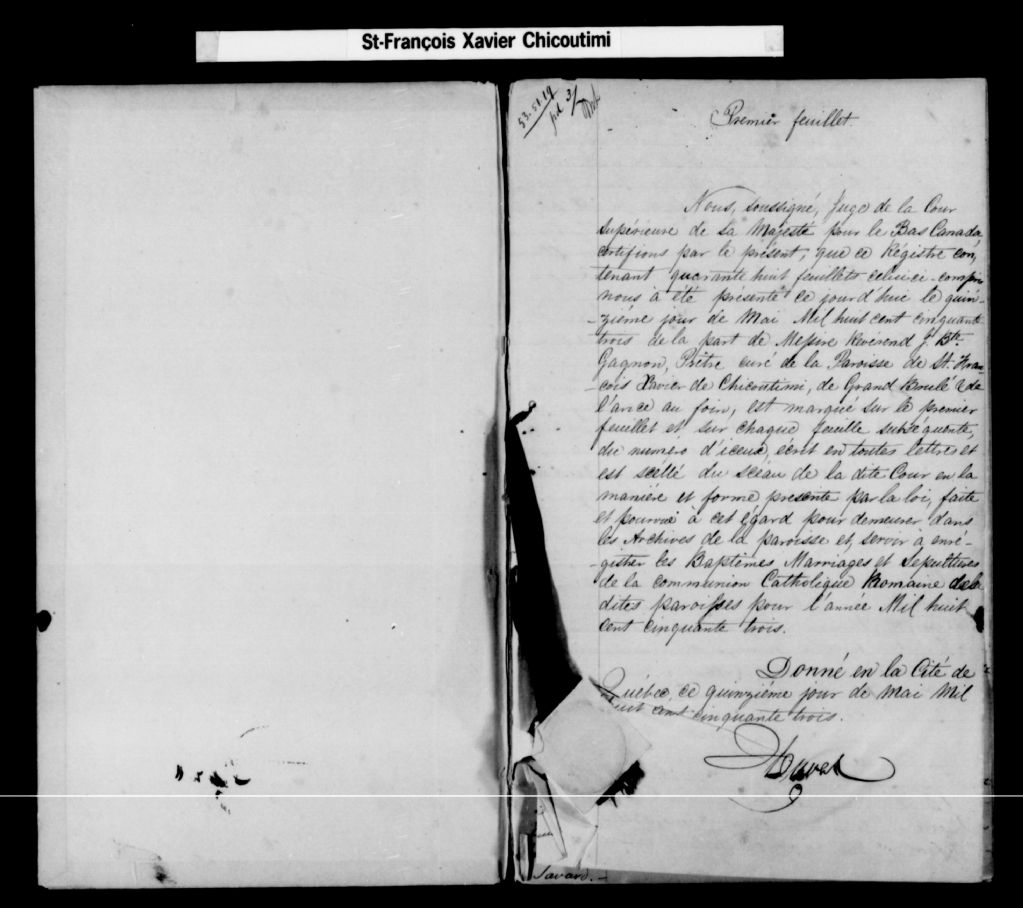 St-François Xavier Chicoutimi
53.51.19
pd 3/
Premier feuillet.
Nous, soussigné, Juge de la Cour
Supérieure de Sa Majesté pour le Bas Canada
certifions par le présent, que ce Régistre con,
tenant quarante huit feuillets celui ci compris
nous à été présenté ce jourd'hui le quin-
-zième jour de Mai Mil huit cent cinquante
trois de la part de Messire Révérend J. Bte.
Gagnon, Prêtre curé de la Paroisse de St. Fran-
-çois Xavier de Chicoutimi, de Grand Brulé & de
l'ance au foin, est marqué sur le premier
feuillet et sur chaque feuille subséquente,
du numéro d'iceux, écrit en toutes lettres et
est scéllé du scéau de la dite Cour en la
manière et forme presente par la loi, faite
et pourvue à cet égard pour demeurer dans
les Archives de la paroisse et, servir à enré-
-gistrer les Baptêmes Marriages et Sepultures
de la communion Catholique Romaine des
dites paroisses pour l'année Mil huit
cent cinquante trois.
Donné en la Cité de
Québec, ce quinzième jour de Mai Mil
huit cent cinquante trois.
Duval
Savard. -